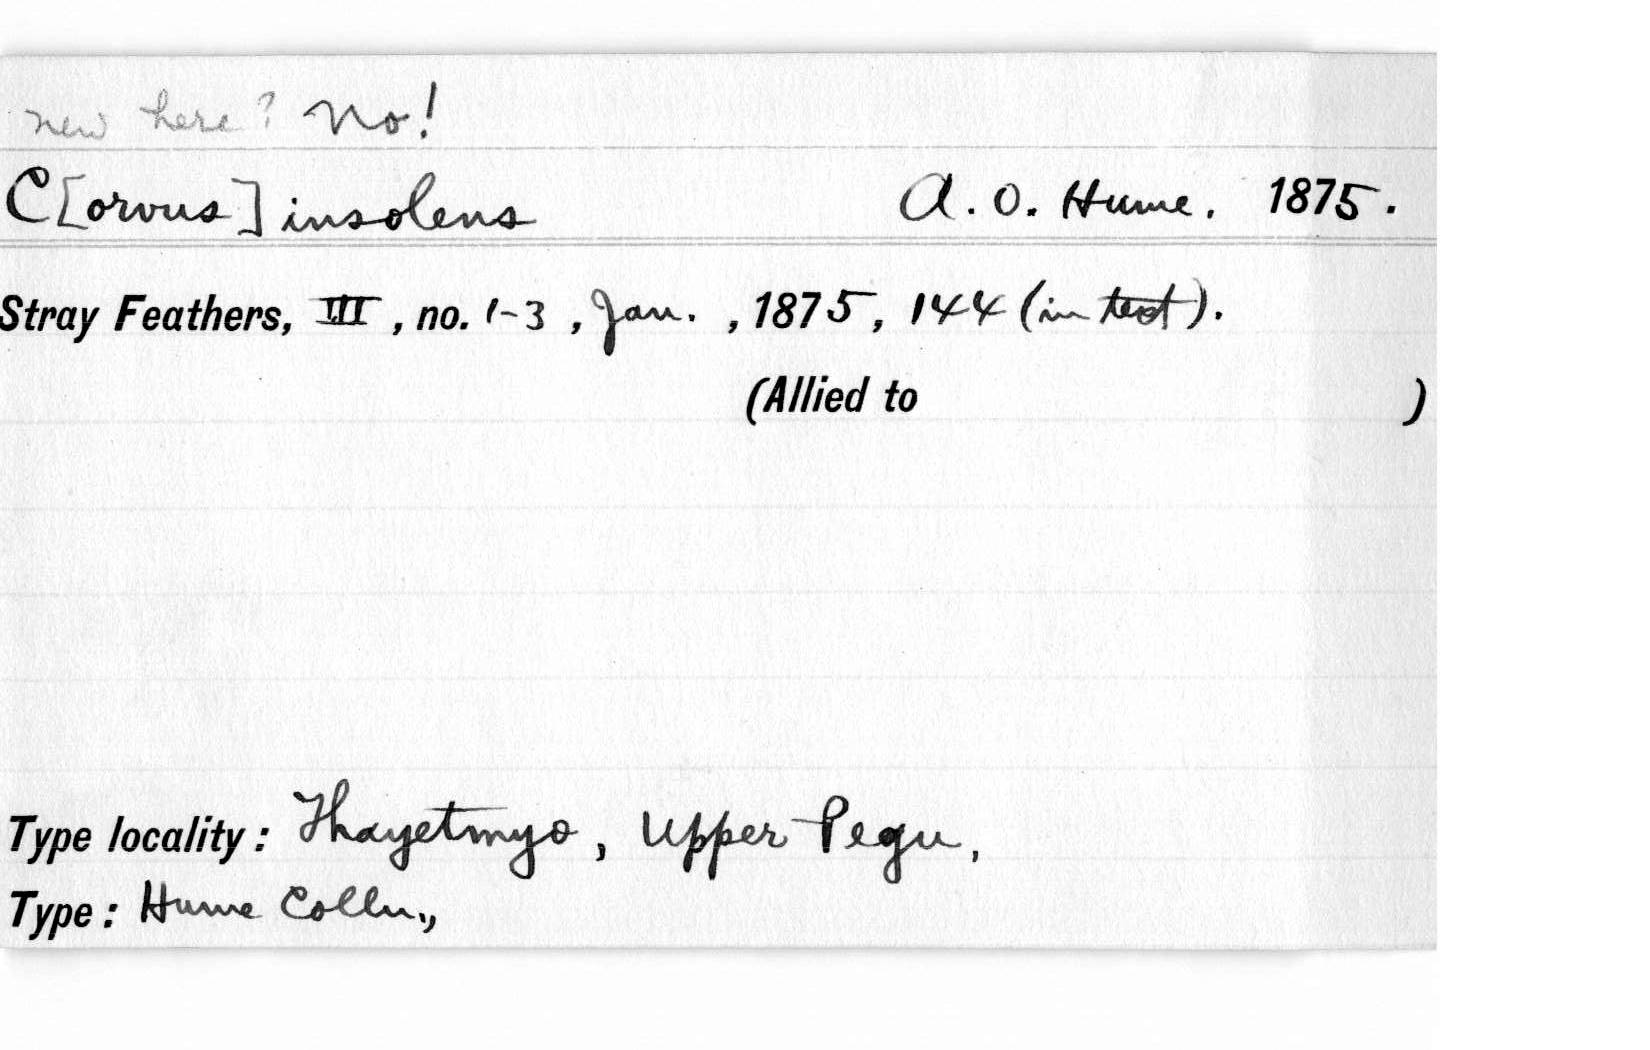 new here? No!
C[orvus] insolens A. O. Hume. 1875.
Stray Feathers, III, no. 1-3, Jan., 1875, 144 (in text).
(Allied to )
Type locality: Thayetmyo, Upper Pegu,
Type: Hume Colln.,